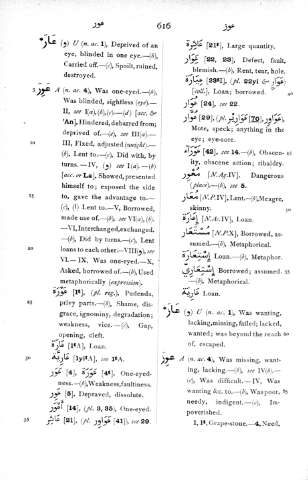 عور 616 عوز
عَازَ (و) U (n. ac. 1), Deprived of an
eye, blinded in one eye.—(b),
Carried off.—(c), Spoilt, ruined,
destroyed.
عَوِرَ A (n. ac. 4), Was one-eyed.—(b),
Was blinded, sightless (eye).—
II, see I(a),(b),(c).—(d) [acc. &
'An], Hindered, debarred from;
deprived of.—(e), see III(a).—
III, Fixed, adjusted (weight).—
(b), Lent to.—(c), Did with, by
turns.—IV, (و) see I(a).—(b)
[acc. or La], Showed, presented
himself to; exposed the side
to, gave the advantage to.—
(c), (ى) Lent to.—V, Borrowed,
made use of.—(b), see VI(a), (b).
—VI, Interchanged, exchanged.
—(b), Did by turns.—(c), Lent
to each other.—VIII(و), see
VI.—IX, Was one-eyed.—X,
Asked, borrowed of.—(b), Used
metaphorically (expression).
عَوْرَة [1t], (pl. reg.), Pudenda,
privy parts.—(b), Shame, dis-
grace, ignominy, degradation;
weakness, vice.—(c), Gap,
opening, cleft.
عَارَة [1tA], Loan.
عَارِيَّة [1yitA], see 1tA.
عَوَر [4], عَوَرَة [4t], One-eyed-
ness.—(b), Weakness, faultiness.
عَوِر [5], Depraved, dissolute.
أَعْوَر [14], (pl. 3, 35), One-eyed.
عَائِر [21], (pl. عَوَاوِر [41]), see 29.
عَائِرَة [21t], Large quantity.
عَوَار [22, 23], Defect, fault,
blemish.—(b), Rent, tear, hole.
[coll.], Loan; borrowed.
عُوَار [24], see 22.
Mote, speck; anything in the
eye; eye-sore.
[42], see 14.—(b), Obscen-
ity, obscene action; ribaldry.
مُعْوِر [Ag.IV], Dangerous
(place)—(b), see 5.
مُعَار [N.P.IV], Lent.—(b), Meagre,
skinny.
إِعَارَة [N.Ac.IV], Loan.
مُسْتَعَار [N.P.X], Borrowed, as-
sumed.—(b), Metaphorical.
إِسْتِعَارَة [N.Ac.X],
Loan.—(b), Metaphor.
إِسْتِعَارِيّ Borrowed; assumed.
—(b), Metaphorical.
عَارِيَّة Loan.
عَازَ (و) U (n. ac. 1), Was wanting,
lacking, missing, failed; lacked,
wanted; was beyond the reach
of, escaped.
عَوِزَ A (n. ac. 4), Was missing, want-
ing, lacking.—(b), see IV(b).—
(c), Was difficult.—IV, Was
wanting &c. to.—(b), Was poor,
needy, indigent.—(c), Im-
poverished.
I, 1t, Grape-stone.—4, Need,